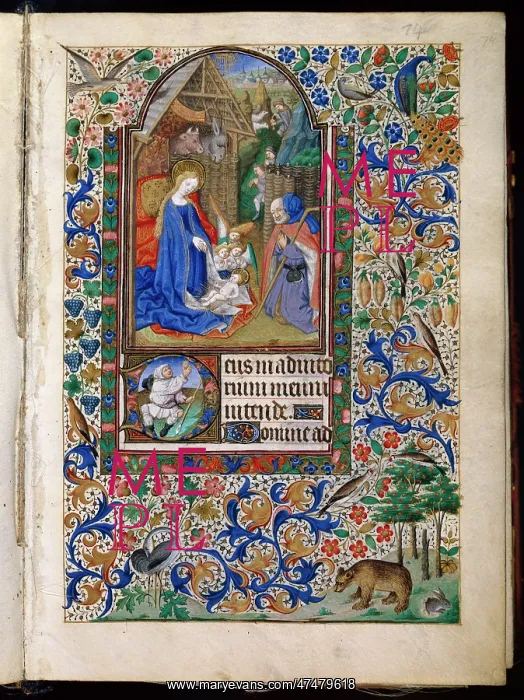 74
ME
PL
Deus in adiuto
rium meum
intende.
Domine ad
ME
PL
www.maryevans.com/47479618